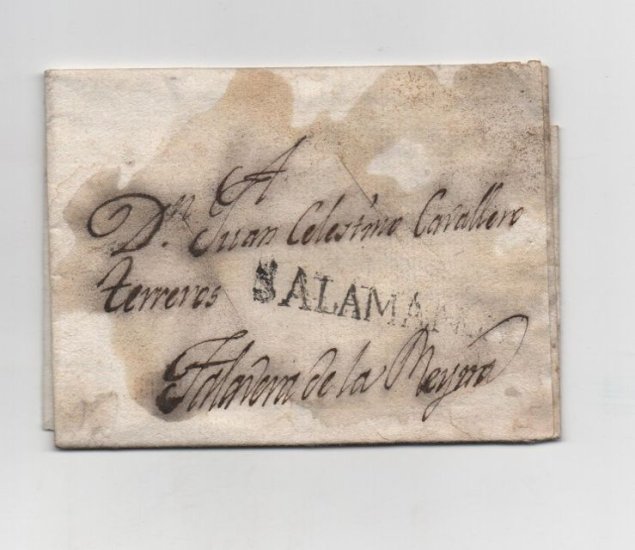 A
Dⁿ. Juan Celestino Cavallero
terreros
SALAMANCA
Talavera de la Reyna